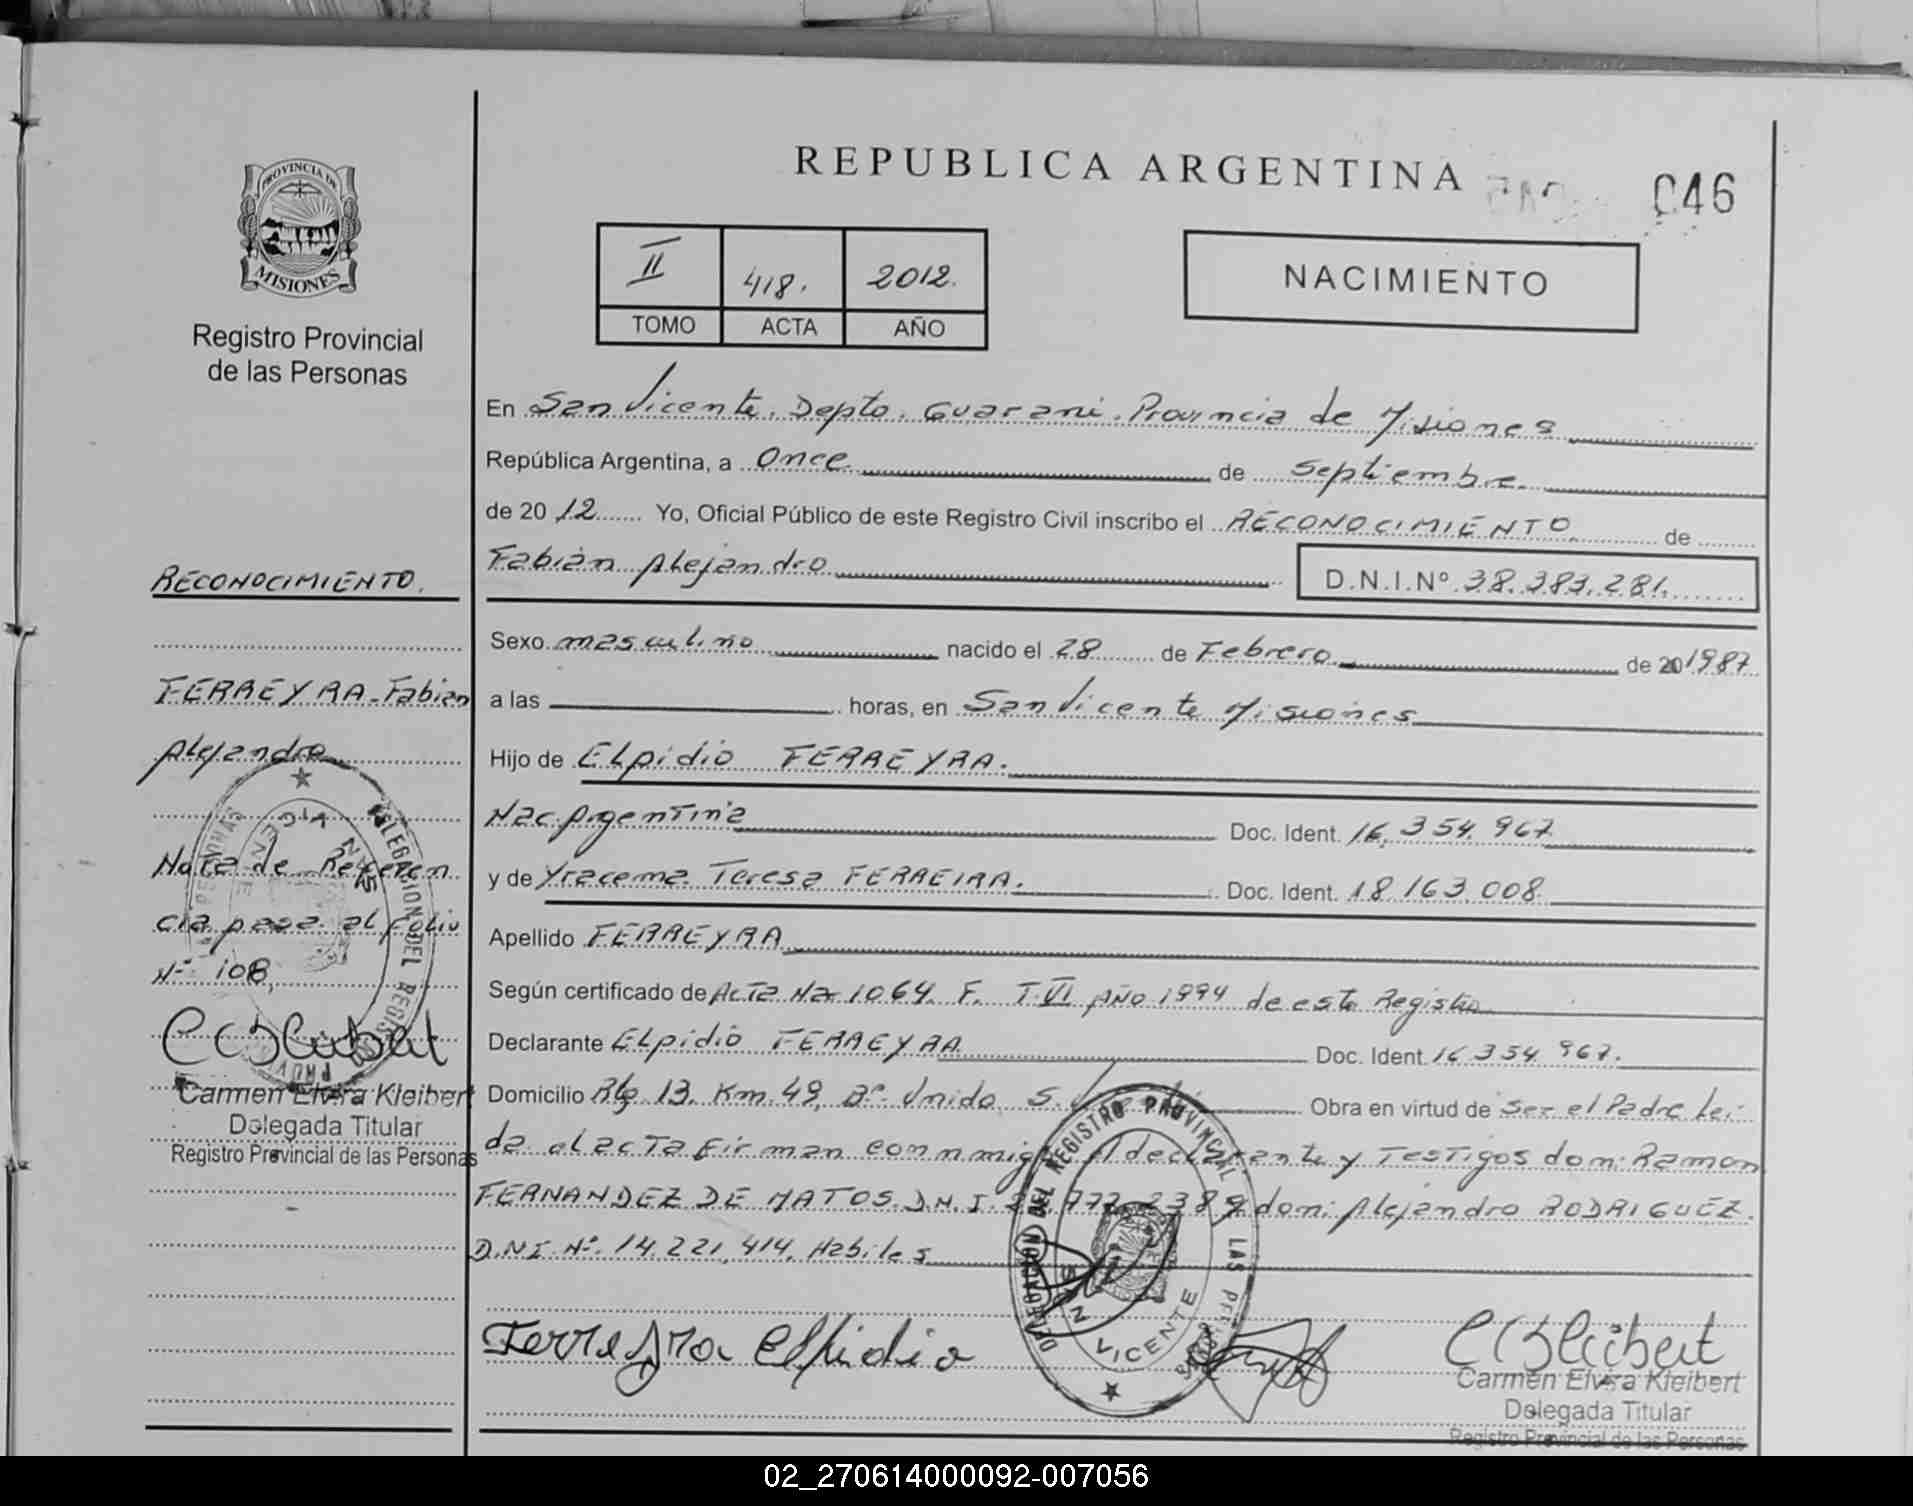 REPUBLICA ARGENTINA
046
PROVINCIA DE
MISIONES
Registro Provincial
de las Personas
II 418. 2012.
TOMO ACTA AÑO
NACIMIENTO
En San Vicente. Depto. Guarani. Provincia de Misiones
República Argentina, a Once de Septiembre
de 2012 Yo, Oficial Público de este Registro Civil inscribo el RECONOCIMIENTO de
Fabián Alejandro D.N.I.Nº 38.383.281.
Sexo masculino nacido el 28 de Febrero de 20 1987
a las horas, en San Vicente Misiones
Hijo de Elpidio FERREYRA.
Nac Argentina Doc. Ident. 16.354.967
y de Yracema Teresa FERREIRA. Doc. Ident. 18.163.008
Apellido FERREYRA
Según certificado de Acta Nº 1064. F. T.VI Año 1994 de este Registro
Declarante Elpidio FERREYRA Doc. Ident. 16.354.967.
Domicilio Km. 49, Bº. Unido S. V Obra en virtud de ser el Padre Lei-
da el acta firman conmigo el declarante y Testigos don: Ramon
FERNANDEZ DE MATOS. D.N.I. don: Alejandro RODRIGUEZ.
D.N.I. Nº. 14.221.414. Habiles
Ferreyra Elpidio
DELEGACION DEL REGISTRO PROVINCIAL LAS PERSONAS
SAN VICENTE
Carmen Elvira Kleibert
Delegada Titular
Registro Provincial de las Personas
RECONOCIMIENTO.
FERREYRA-Fabian
Alejandro
Nota de Referen
cia pasa al folio
Nº 108
DELEGACION DEL REGISTRO
SAN VICENTE
Carmen Elvira Kleibert
Delegada Titular
Registro Provincial de las Personas
02_270614000092-007056